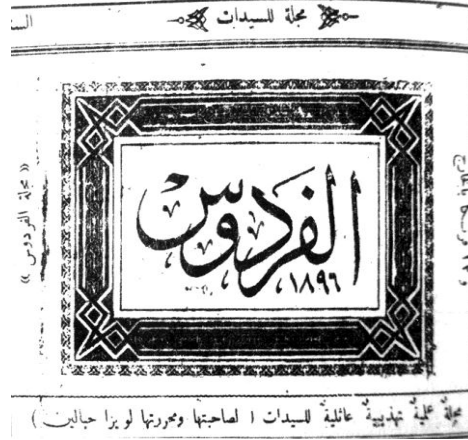 مجلة للسيدات
« مجلة الفردوس »
الفردوس
١٨٩٦
مجلةٌ علميةٌ تهذيبيةٌ عائليةٌ للسيدات ( لصاحبتها ومحررتها لويزا حبالين )